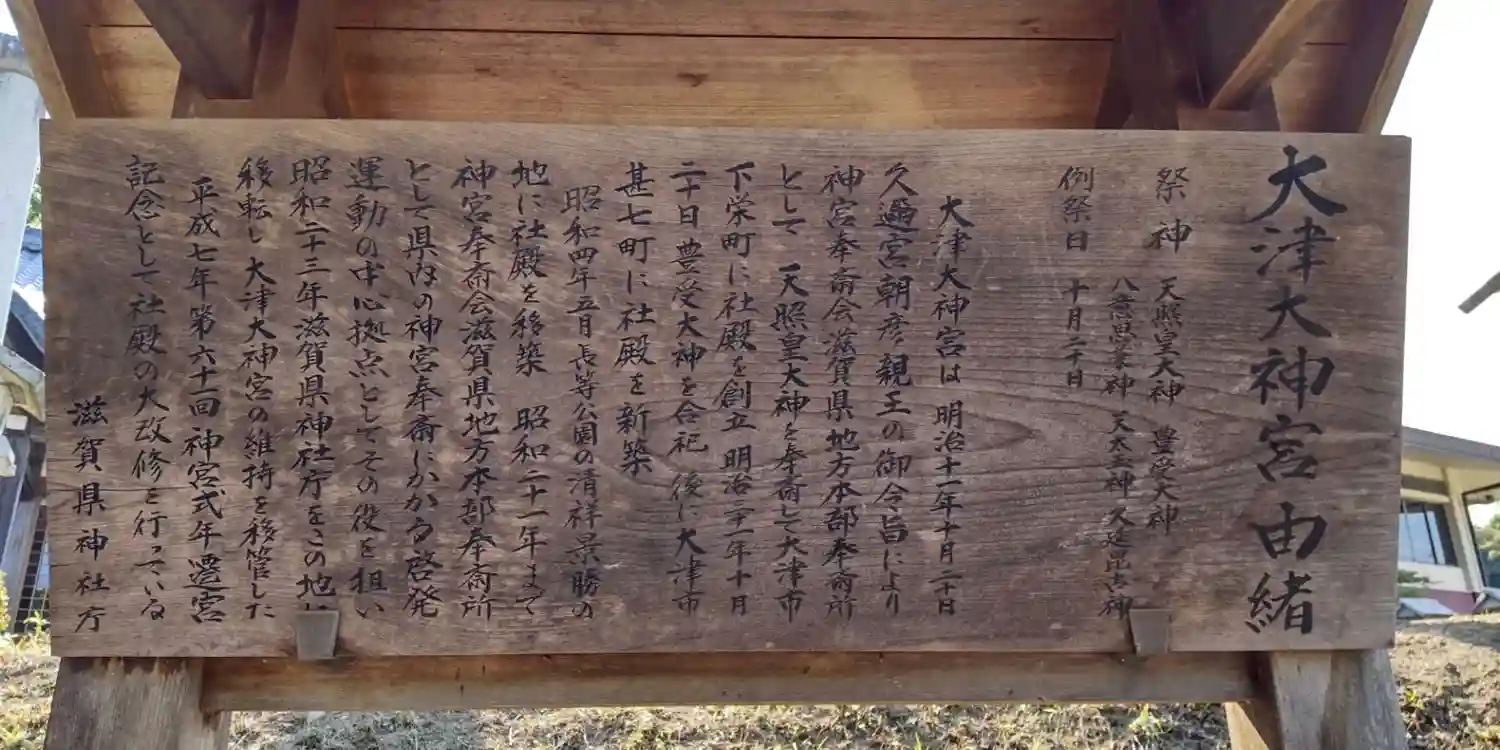 大津大神宮由緒
祭神 天照皇大神 豊受大神
八意思兼神 天太玉神 久延毘古神
例祭日 十月二十日
大津大神宮は 明治十一年十月二十日
久邇宮朝彦親王の御令旨により
神宮奉斎会滋賀県地方本部奉斎所
として 天照皇大神を奉斎して大津市
下栄町に社殿を創立 明治二十一年十月
二十日 豊受大神を合祀 後に大津市
甚七町に社殿を新築
昭和四年五月長等公園の清祥景勝の
地に社殿を移築 昭和二十一年まで
神宮奉斎会滋賀県地方本部奉斎所
として県内の神宮奉斎にかかる啓発
運動の中心拠点としてその役を担い
昭和二十三年滋賀県神社庁をこの地に
移転し大津大神宮の維持を移管した
平成七年第六十一回神宮式年遷宮
記念として社殿の大改修を行っている
滋賀県神社庁